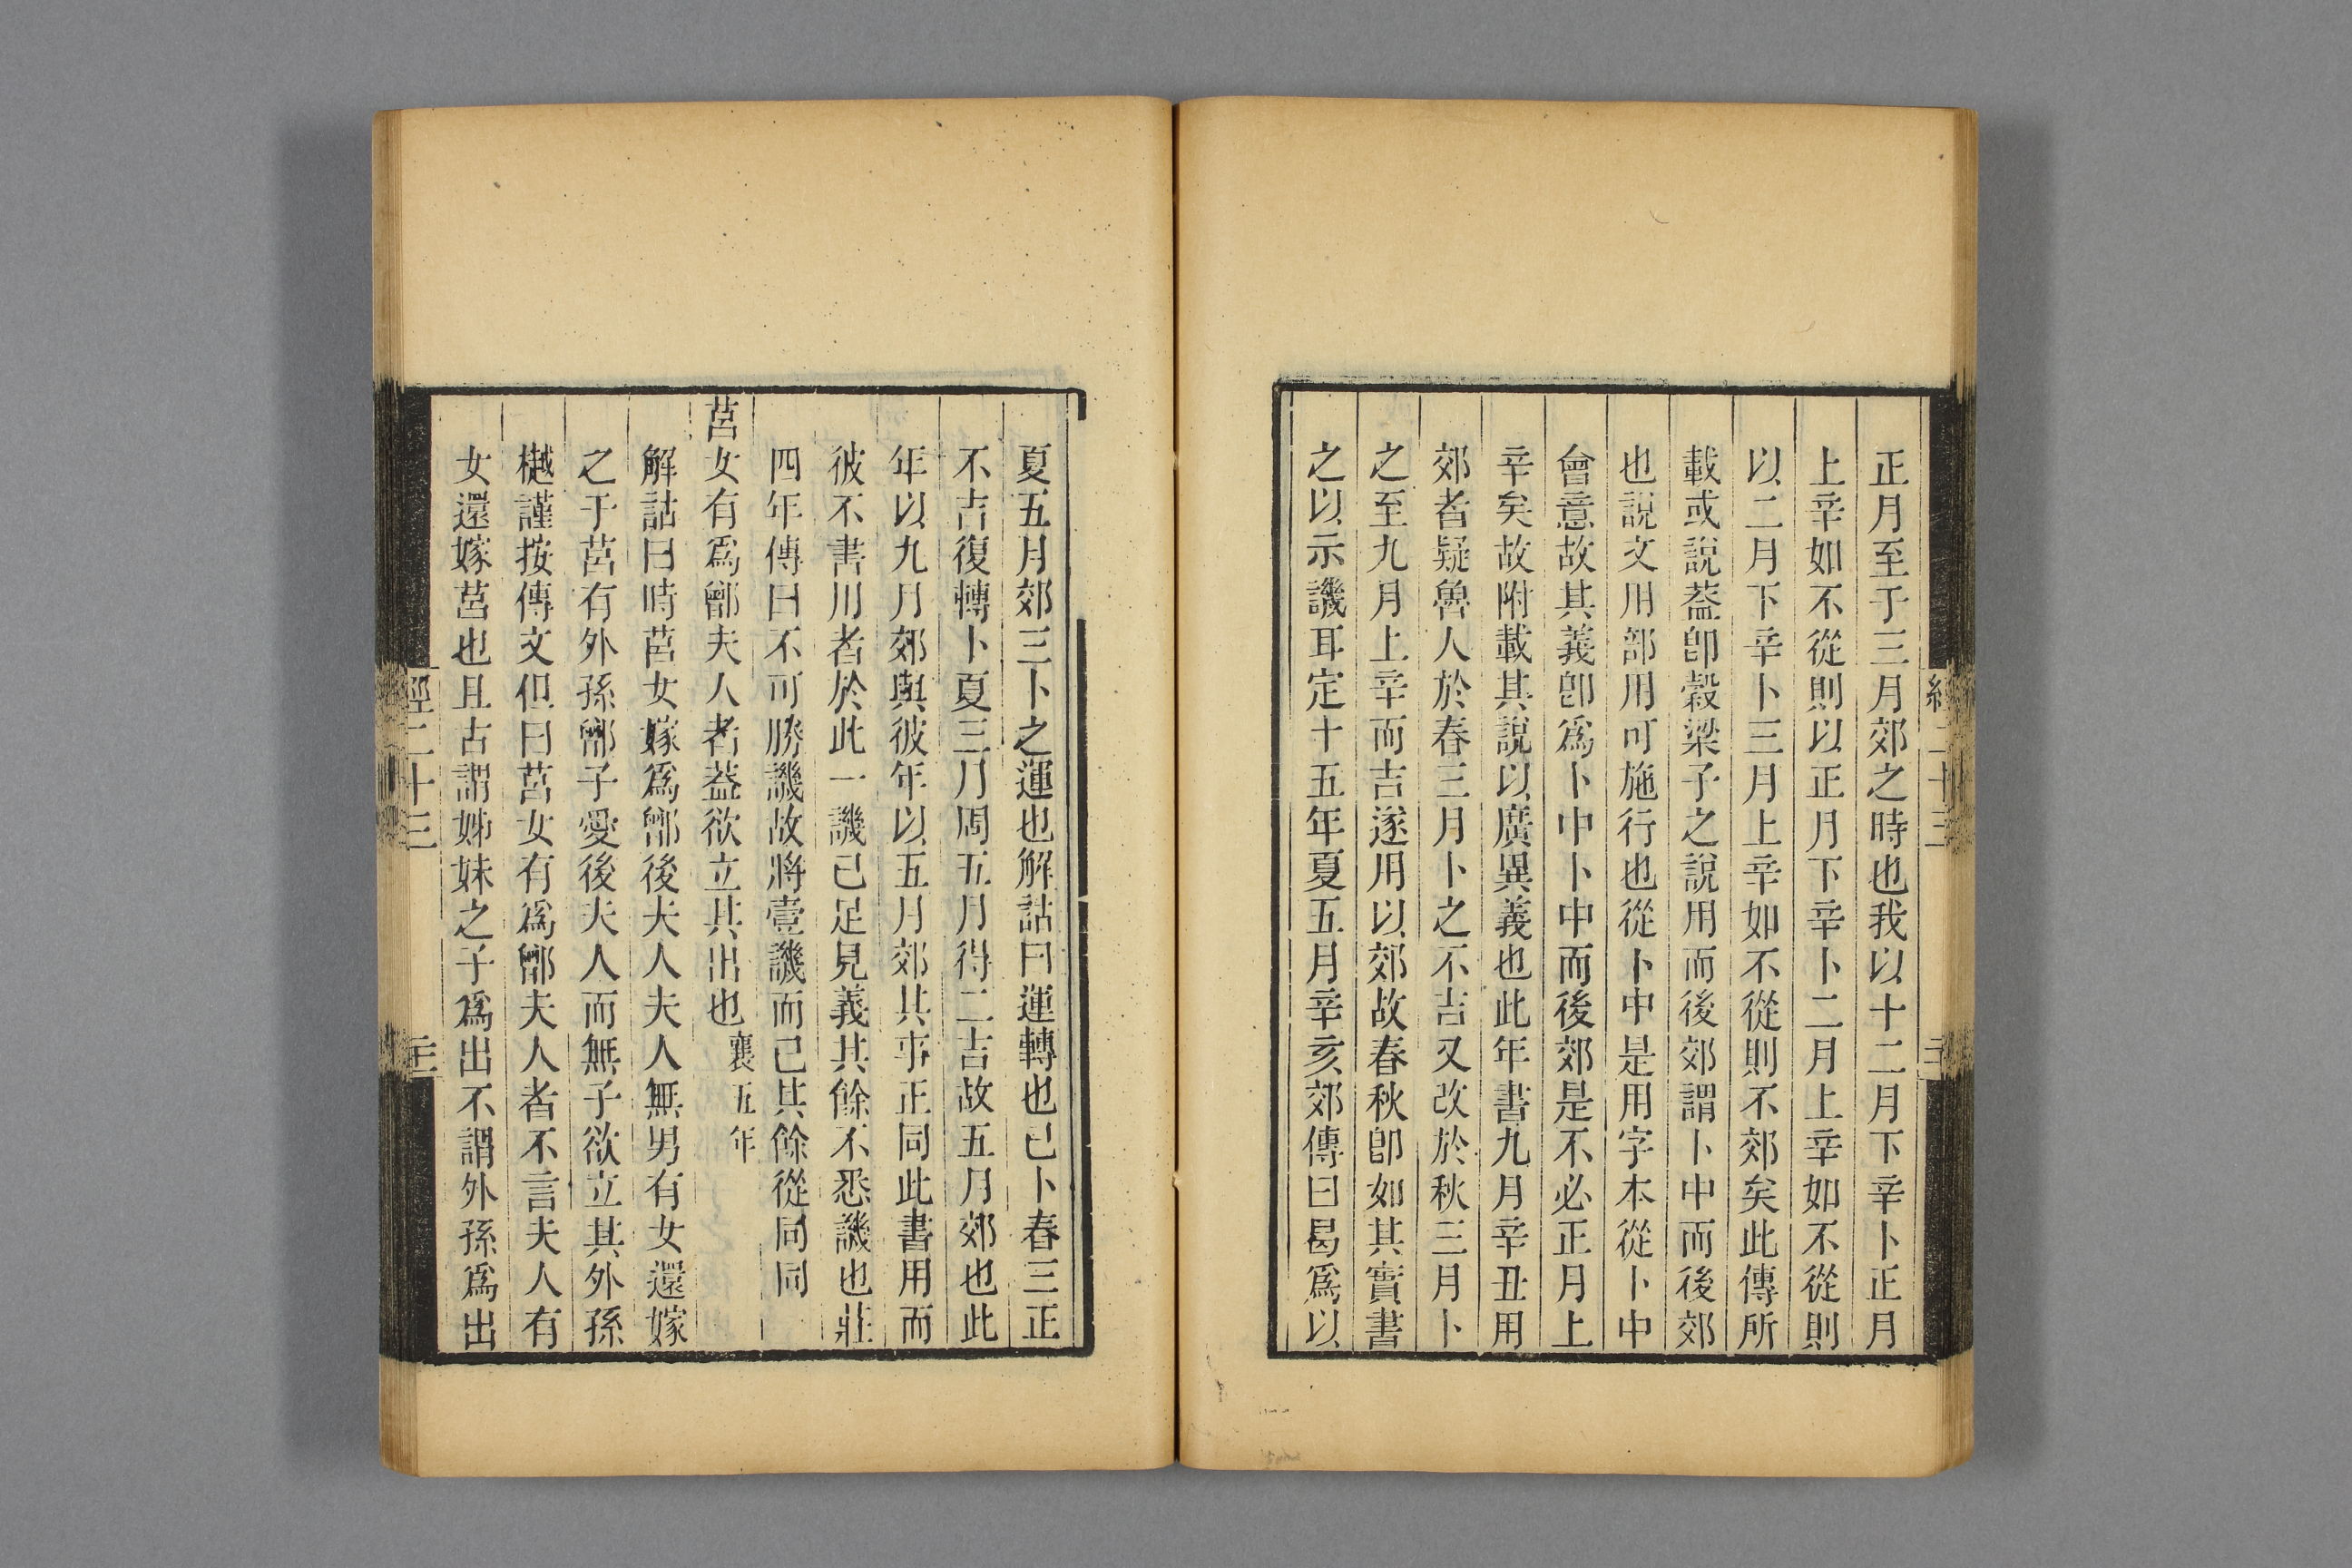 正月至于三月郊之時也我以十二月下辛卜正月
上辛如不從則以正月下辛卜二月上辛如不從則
以二月下辛卜三月上辛如不從則不郊矣此傳所
載或說葢卽穀梁子之說用而後郊謂卜中而後郊
也說文用部用可施行也從卜中是用字本從卜中
會意故其義卽爲卜中卜中而後郊是不必正月上
辛矣故附載其說以廣異義也此年書九月辛丑用
郊者疑魯人於春三月卜之不吉又改於秋三月卜
之至九月上辛而吉遂用以郊故春秋卽如其實書
之以示譏耳定十五年夏五月辛亥郊傳曰曷爲以
夏五月郊三卜之運也解詁曰運轉也已卜春三正
不吉復轉卜夏三月周五月得二吉故五月郊也此
年以九月郊與彼年以五月郊其事正同此書用而
彼不書用者於此一譏已足見義其餘不悉譏也莊
四年傳曰不可勝譏故將壹譏而已其餘從同同
莒女有爲鄫夫人者葢欲立其出也 襄五年
解詁曰時莒女嫁爲鄫後夫人夫人無男有女還嫁
之于莒有外孫鄫子愛後夫人而無子欲立其外孫
樾謹按傳文但曰莒女有爲鄫夫人者不言夫人有
女還嫁莒也且古謂姊妹之子爲出不謂外孫爲出
經二十三